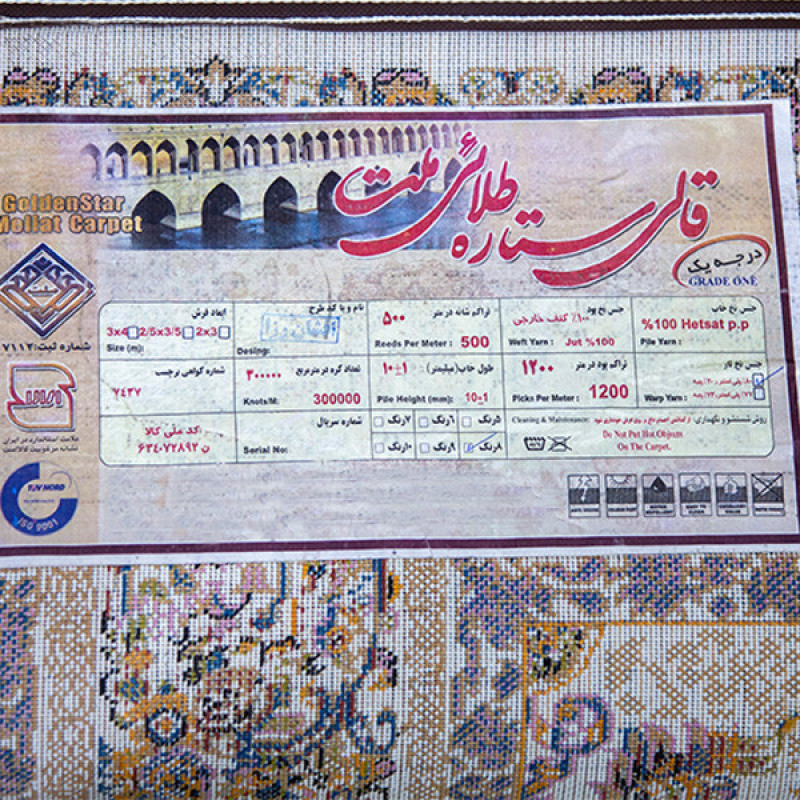 قالی ستاره طلائی ملت
GoldenStar
Mollat Carpet
درجه یک
GRADE ONE
شماره ثبت: ۷۱۱۲
علامت استاندارد در ایران
نشانه مرغوبیت کالاست
TUV NORD
ISO 9001
جنس نخ خاب
%100 Hetsat p.p
Pile Yarn :
جنس نخ پود
۱۰۰٪ کنف خارجی
Weft Yarn : Jut %100
تراکم شانه در متر ۵۰۰
Reeds Per Meter : 500
نام و یا کد طرح
Desing:
ابعاد فرش
3x4 2/5x3/5 2x3
Size (m):
جنس نخ تار
Warp Yarn :
تراکم پود در متر ۱۲۰۰
Picks Per Meter : 1200
طول خاب (میلیمتر) : ۱۰±۱
Pile Height (mm): 10±1
تعداد گره در مترمربع ۳۰۰۰۰۰
Knots/M: 300000
شماره گواهی برچسب
۷۴۳۷
روش شستشو و نگهداری:
Cleaning & Maintenance:
Do Not Put Hot Objects
On The Carpet.
۵رنگ ۶رنگ ۷رنگ
۸رنگ ۹رنگ ۱۰رنگ
شماره سریال
Serial No:
کد ملی کالا
ن ۶۳۴۰۷۲۸۹۲